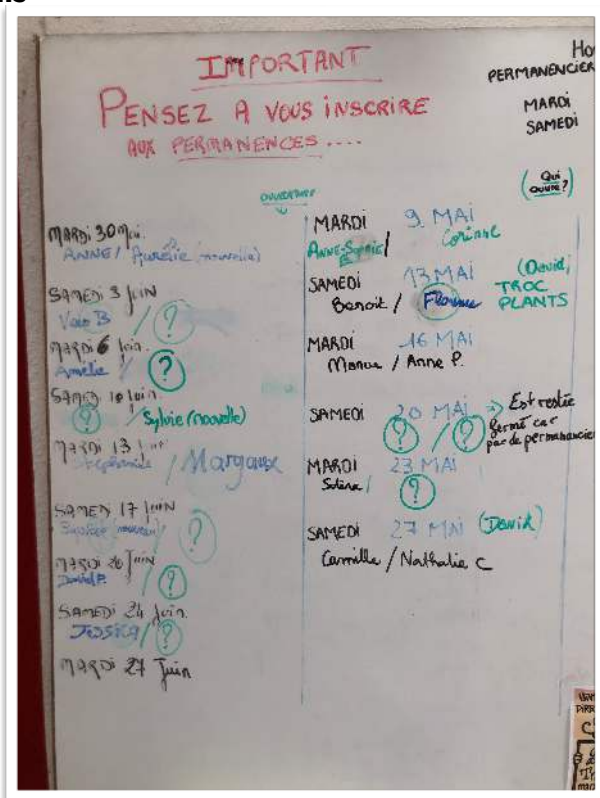 IMPORTANT
PENSEZ A VOUS iNSCRIRE
AUX PERMANENCES ....
Ho
PERMANENCIER
MARDi
SAMEDI
(Qui ouvre?)
OUVERTURE
MARDI 30 Mai.
ANNE / Aurélie (nouvelle)
SAMEDI 3 JUIN
B / ?
MARDI 6 Juin.
Amélie / ?
SAMEDI 10 Juin.
? / Sylvie (nouvelle)
MARDI 13 Juin
/ Margaux
SAMEDI 17 JUIN
/ ?
MARDI 20 JUIN
David P. / ?
SAMEDI 24 Juin.
JESSICA / ?
MARDI 27 Juin
MARDI 9 MAI
ANNE-Sophie / Corinne
SAMEDI 13 MAI (David,
Benoit / TROC
PLANTS
MARDI 16 MAI
/ Anne P.
SAMEDI 20 MAI → Est restée
? / ? fermé car
pas de permanancier
MARDI 23 MAI
/ ?
SAMEDI 27 MAI (David)
Camille / Nathalie C